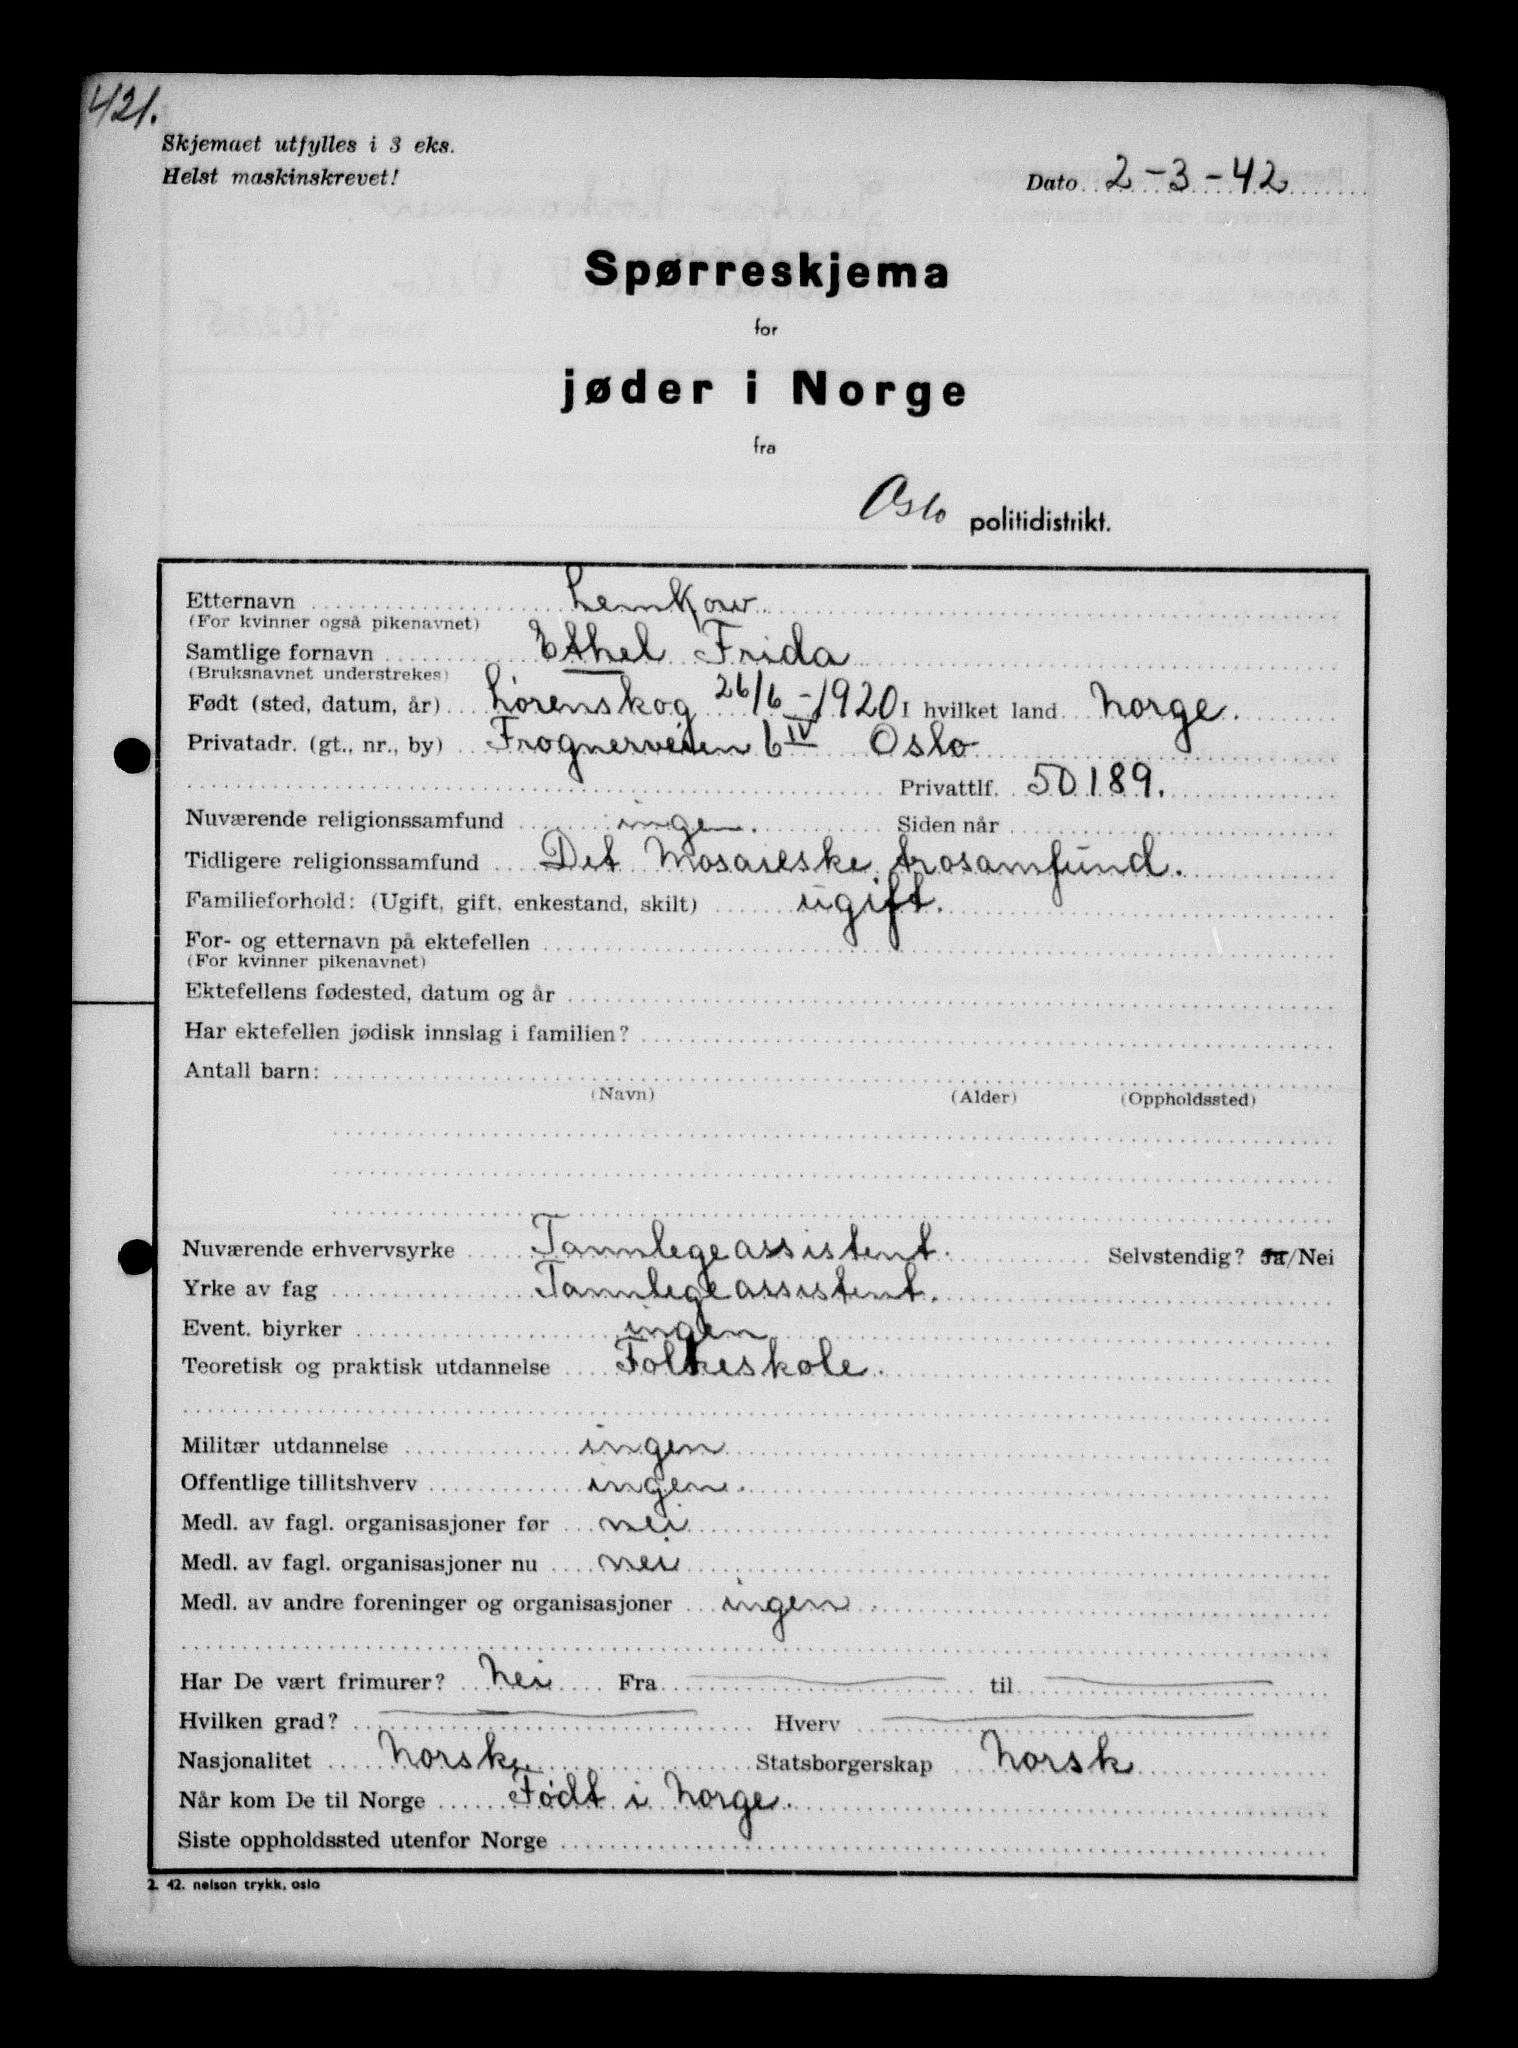 421.
Skjemaet utfylles i 3 eks.
Helst maskinskrevet!
Dato 2-3-42
Spørreskjema
for
jøder i Norge
fra
Oslo politidistrikt.
Etternavn Lemkow
(For kvinner også pikenavnet)
Samtlige fornavn Ethel Frida
(Bruksnavnet understrekes)
Født (sted, datum, år) Lørenskog 26/6-1920 I hvilket land Norge.
Privatadr. (gt., nr., by) Frognerveien 6 IV Oslo
Privattlf. 50189.
Nuværende religionssamfund ingen. Siden når
Tidligere religionssamfund Det Mosaieske trosamfund.
Familieforhold: (Ugift, gift, enkestand, skilt) ugift.
For- og etternavn på ektefellen
(For kvinner pikenavnet)
Ektefellens fødested, datum og år
Har ektefellen jødisk innslag i familien?
Antall barn:
(Navn) (Alder) (Oppholdssted)
Nuværende erhvervsyrke Tannlegeassistent. Selvstendig? Ja/Nei
Yrke av fag Tannlegeassistent.
Event. biyrker ingen
Teoretisk og praktisk utdannelse Folkeskole.
Militær utdannelse ingen
Offentlige tillitshverv ingen.
Medl. av fagl. organisasjoner før nei
Medl. av fagl. organisasjoner nu nei
Medl. av andre foreninger og organisasjoner ingen
Har De vært frimurer? Nei Fra til
Hvilken grad? Hverv
Nasjonalitet Norsk Statsborgerskap Norsk
Når kom De til Norge Født i Norge.
Siste oppholdssted utenfor Norge
2. 42. nelson trykk, oslo